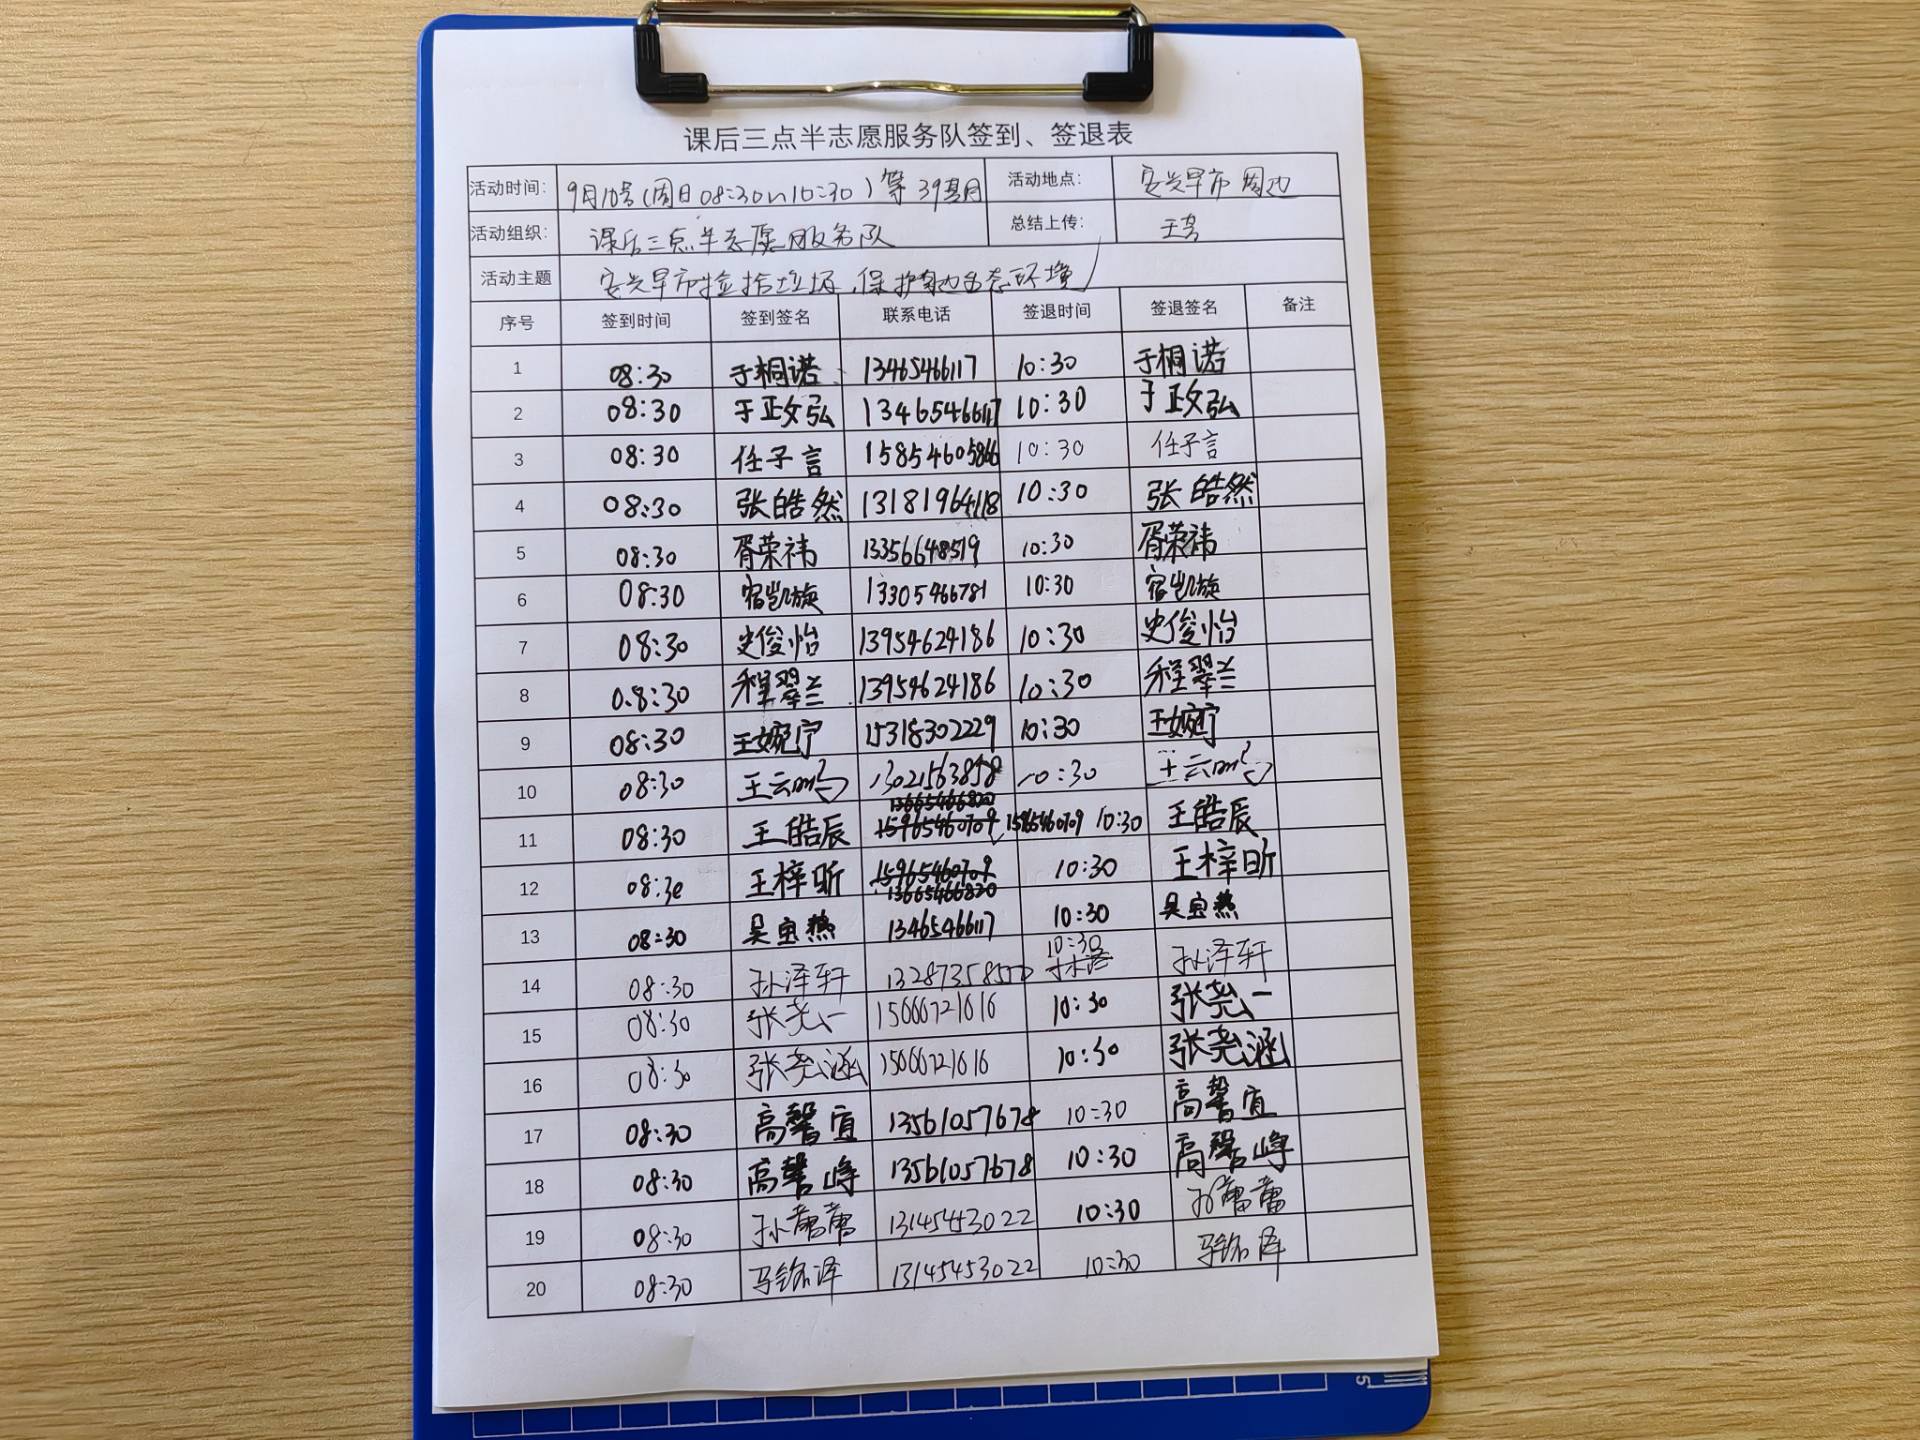 课后三点半志愿服务队签到、签退表
活动时间: 9月10号(周日08:30~10:30) 等39期 活动地点: 安兴早市周边
活动组织: 课后三点半志愿服务队 总结上传:
活动主题 安兴早市捡拾垃圾,保护周边生态环境
序号 签到时间 签到签名 联系电话 签退时间 签退签名 备注
1 08:30 于桐诺 13465466117 10:30 于桐诺
2 08:30 于政弘 13465466117 10:30 于政弘
3 08:30 任子言 15854605866 10:30 任子言
4 08:30 张皓然 13181964118 10:30 张皓然
5 08:30 胥荣祎 13356648519 10:30 胥荣祎
6 08:30 宿凯旋 13305466781 10:30 宿凯旋
7 08:30 史俊怡 13954624186 10:30 史俊怡
8 08:30 程翠兰 13954624186 10:30 程翠兰
9 08:30 王婉宁 15318302229 10:30 王婉宁
10 08:30 王云鹏 13021563858 10:30 王云鹏
11 08:30 王皓辰 13665466820 15965460709 15965460709 10:30 王皓辰
12 08:30 王梓昕 15965460709 13665466820 10:30 王梓昕
13 08:30 吴宝燕 13465466117 10:30 吴宝燕
14 08:30 孙泽轩 10:30 孙泽轩
15 08:30 张尧一 15066721616 10:30 张尧一
16 08:30 张尧涵 15066721616 10:30 张尧涵
17 08:30 高馨宜 13561057678 10:30 高馨宜
18 08:30 高馨峥 13561057678 10:30 高馨峥
19 08:30 13145453022 10:30
20 08:30 马铭泽 13145453022 10:30 马铭泽